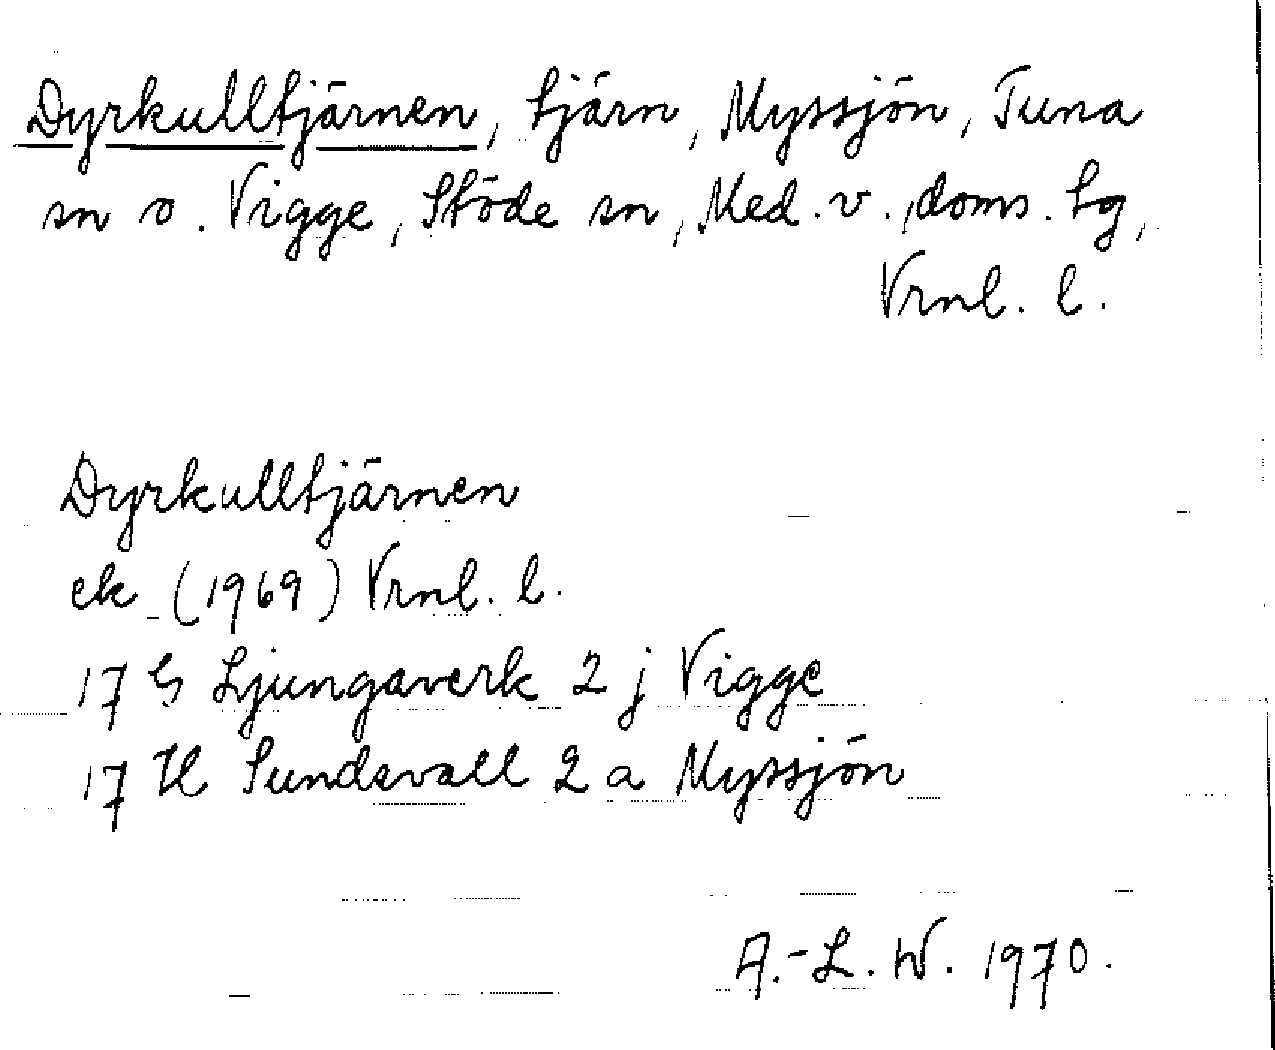 Dyrkulltjärnen, tjärn, Myssjön, Tuna
sn o. Vigge, Stöde sn, Med. v., doms. tg,
Vrnl. l.
Dyrkulltjärnen
ek (1969) Vrnl. l.
17 G Ljungaverk 2 j Vigge
17 H Sundsvall 2 a Myssjön
A.-L. W. 1970.